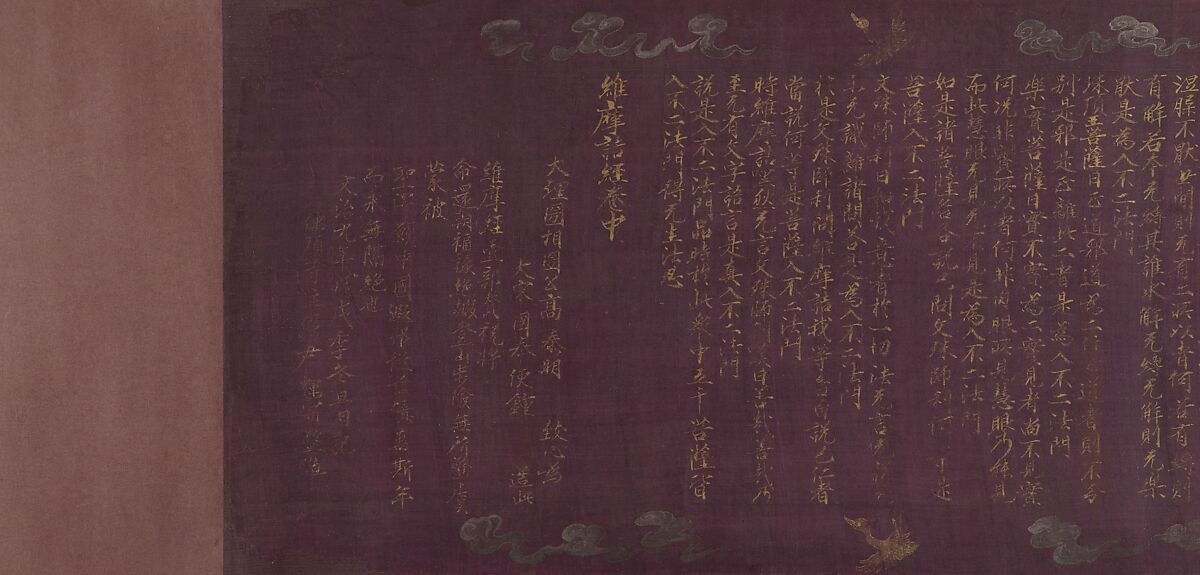 涅槃不猒世間則无有二所以者何若有縛則
有解若本无縛其誰求解无縛无解則无樂
猒是為入不二法門
珠頂王菩薩曰正道邪道為二住正道者則不分
別是邪是正離此二者是為入不二法門
樂實菩薩曰實不實為二實見者尚不見實
何況非實所以者何非肉眼所見慧眼乃能見
而此慧眼无見无不見是為入不二法門
如是諸菩薩各各說已問文殊師利何等是
菩薩入不二法門
文殊師利曰如我意者於一切法无言无說
示无識離諸問答是為入不二法門
於是文殊師利問維摩詰我等各自說已仁者
當說何等是菩薩入不二法門
時維摩詰默然无言文殊師利歎曰善哉善哉乃
至无有文字語言是真入不二法門
說是入不二法門品時於此眾中五千菩薩皆
入不二法門得无生法忍
維摩詰經卷中
大理國相國公高泰明 致心為
大宋國奉使鍾 造此
維摩經壹部贊祝將
命還朝福祿遐嘏登山步險無所驚虞
蒙被
聖澤中國遐斯年
而永無隔絕也
文治九年戊戌季冬旦日記
佛頂寺主僧尹輝富監造